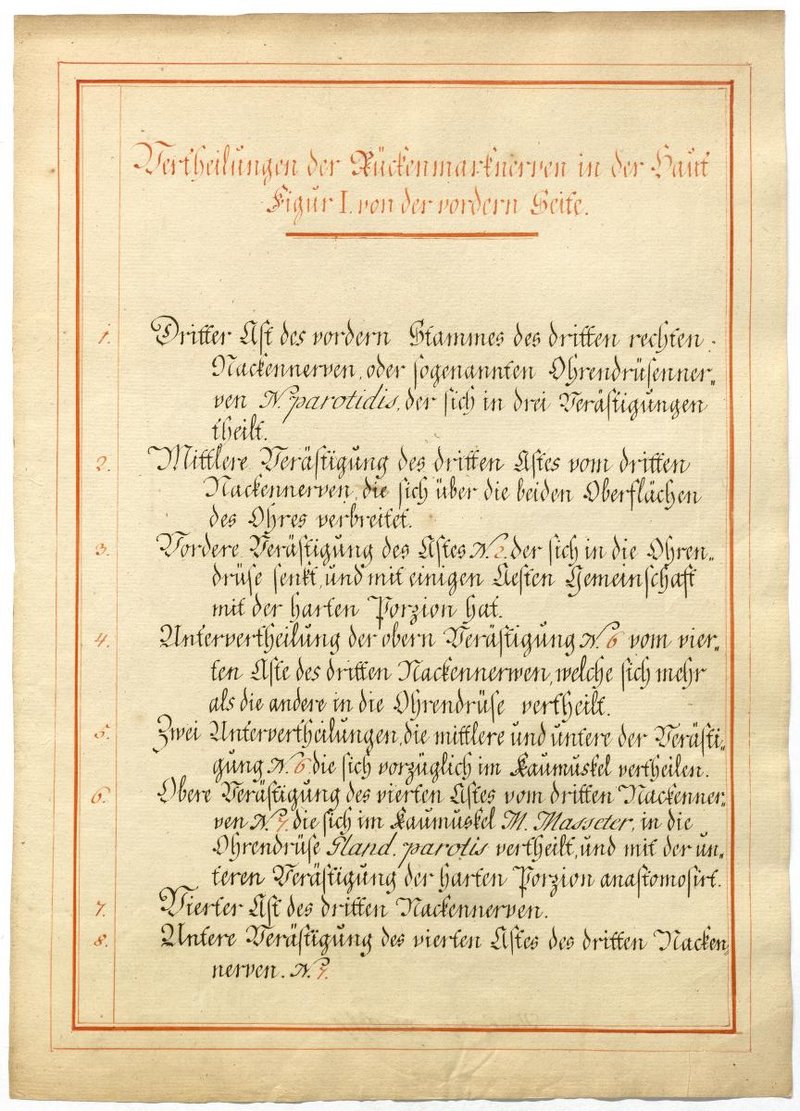 Vertheilungen der Rückenmarknerven in der Haut
Figur I. von der vordern Seite.
1. Dritter Ast des vordern Stammes des dritten rechten
Nackennerven, oder sogenannten Ohrendrüsenner„
ven N. parotidis, der sich in drei Verästigungen
theilt.
2. Mittlere Verästigung des dritten Astes vom dritten
Nackennerven, die sich über die beiden Oberflächen
des Ohres verbreitet.
3. Vordere Verästigung des Astes N. 2. der sich in die Ohren„
drüse senkt, und mit einigen Aesten Gemeinschaft
mit der harten Porzion hat.
4. Untervertheilung der obern Verästigung N. 6 vom vier„
ten Aste des dritten Nackennerwen, welche sich mehr
als die andere in die Ohrendrüse vertheilt.
5. Zwei Untervertheilungen, die mittlere und untere der Verästi„
gung N. 6. die sich vorzüglich im Kaumuskel vertheilen.
6. Obere Verästigung des vierten Astes vom dritten Nackenner„
ven N. 7. die sich im Kaumuskel M. Masseter, in die
Ohrendrüse Gland. parotis vertheilt, und mit der un„
teren Verästigung der harten Porzion anastomosirt.
7. Vierter Ast des dritten Nackennerven.
8. Untere Verästigung des vierten Astes des dritten Nacken„
nerven. N. 7.